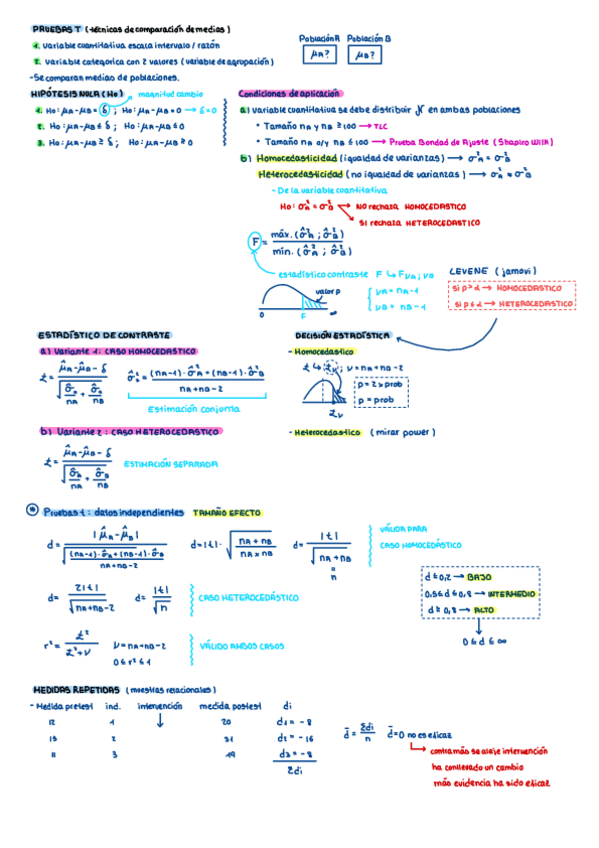 PRUEBAS T (técnicas de comparación de medias)
1. variable cuantitativa escala intervalo / razón
2. variable categorica con 2 valores (variable de agrupación)
-Se comparan medias de poblaciones.
Población A Población B
μA? μB?
HIPÓTESIS NULA (Ho) magnitud cambio
1. Ho: μA-μB = δ ; Ho: μA-μB = 0 → δ=0
2. Ho: μA-μB ≤ δ ; Ho: μA-μB ≤ 0
3. Ho: μA-μB ≥ δ ; Ho: μA-μB ≥ 0
Condiciones de aplicación
a) variable cuantitativa se debe distribuir N en ambas poblaciones
• Tamaño nA y nB ≥ 100 → TLC
• Tamaño nA o/y nB ≤ 100 → Prueba Bondad de Ajuste (Shapiro Wilk)
b) Homocedasticidad (igualdad de varianzas) → σ²A = σ²B
Heterocedasticidad (no igualdad de varianzas) → σ²A ≠ σ²B
- De la variable cuantitativa
Ho: σ²A = σ²B NO rechaza HOMOCEDASTICO
SI rechaza HETEROCEDASTICO
F = máx. (σ̂²A ; σ̂²B) / mín. (σ̂²A ; σ̂²B)
estadística contraste F ↳ F νA; νB
valor p
0 F ∞
νA = nA-1
νB = nB-1
LEVENE (jamovi)
si p>α → HOMOCEDASTICO
si p≤α → HETEROCEDASTICO
ESTADÍSTICO DE CONTRASTE
a) Variante 1: CASO HOMOCEDASTICO
t = μ̂A-μ̂B-δ / √(σ̂/nA + σ̂/nB)
σ̂² = (nA-1)·σ̂²A + (nB-1)·σ̂²B / nA+nB-2
Estimación conjunta
b) Variante 2: CASO HETEROCEDASTICO
t = μ̂A-μ̂B-δ / √(σ̂A/nA + σ̂B/nB)
ESTIMACIÓN SEPARADA
DECISIÓN ESTADÍSTICA
- Homocedastico
t ↳ tν ; ν = nA+nB-2
p = 2 x prob
p = prob
tν
- Heterocedastico (mirar power)
Pruebas t: datos independientes TAMAÑO EFECTO
d = |μ̂A-μ̂B| / √((nA-1)·σ̂A+(nB-1)·σ̂B / nA+nB-2)
d = |t|· √(nA+nB / nA x nB)
d = |t| / √(nA+nB)
= n
VÁLIDA PARA
CASO HOMOCEDÁSTICO
d = 2|t| / √(nA+nB-2)
d = |t| / √n
CASO HETEROCEDÁSTICO
r² = t² / t²+ν
ν = nA+nB-2
0 ≤ r² ≤ 1
VÁLIDO AMBOS CASOS
d ≤ 0,2 → BAJO
0,5 ≤ d ≤ 0,8 → INTERMEDIO
d ≥ 0,8 → ALTO
0 ≤ d ≤ ∞
MEDIDAS REPETIDAS (muestras relacionales)
- Medida pretest ind. intervención medida postest di
12 1 20 d1 = -8
15 2 31 d2 = -16
11 3 19 d3 = -8
Σdi
d̄ = Σdi / n
d̄=0 no es eficaz
contra más se aleje intervención
ha conllevado un cambio
más evidencia ha sido eficaz